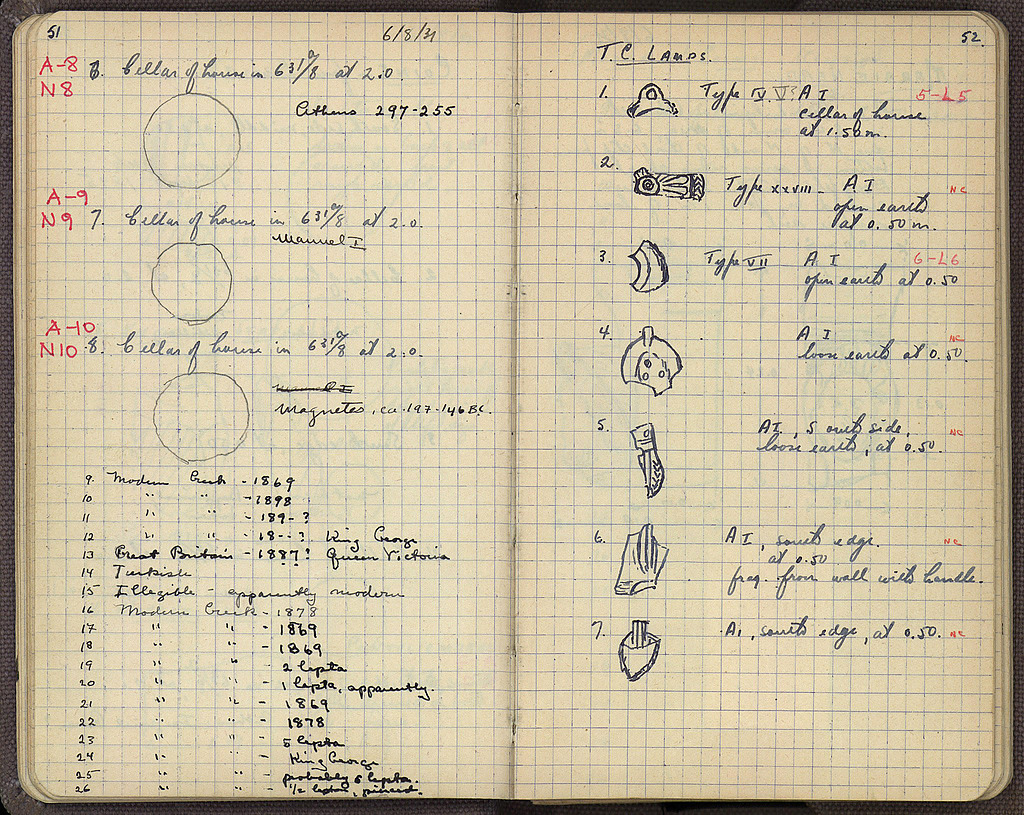 51
6/8/31
A-8
N8
Cellar of house in 631/8 at 2.0.
Athens 297-255
A-9
N9 7. Cellar of house in 631/8 at 2.0.
Manuel I
A-10
N10 8. Cellar of house in 631/8 at 2.0.
Manuel I
Magnetes, ca. 197-146 BC.
9. Modern Greek - 1869
10 " " - 1898
11 " " - 189-?
12 " " - 18--? King George
13 Great Britain - 1887? Queen Victoria
14 Turkish
15 Illegible - apparently modern
16 Modern Greek - 1878
17 " " - 1869
18 " " - 1869
19 " " - 2 lepta
20 " " - 1 lepta, apparently.
21 " " - 1869
22 " " - 1878
23 " " - 5 lepta
24 " " - King George
25 " " - probably 5 lepta.
26 " " - 1/2 lepton, pierced.
52
T.C. LAMPS.
1. Type IV V? A I 5-L5
cellar of house
at 1.50 m.
2. Type XXVIII - A I NC
open earth
at 0.50 m.
3. Type VII A. I 6-L6
open earth at 0.50
4. A I NC
loose earth at 0.50.
5. AI, South side, NC
loose earth, at 0.50.
6. A I, south edge. NC
at 0.50
frag. from wall with handle.
7. A1, south edge, at 0.50. NC